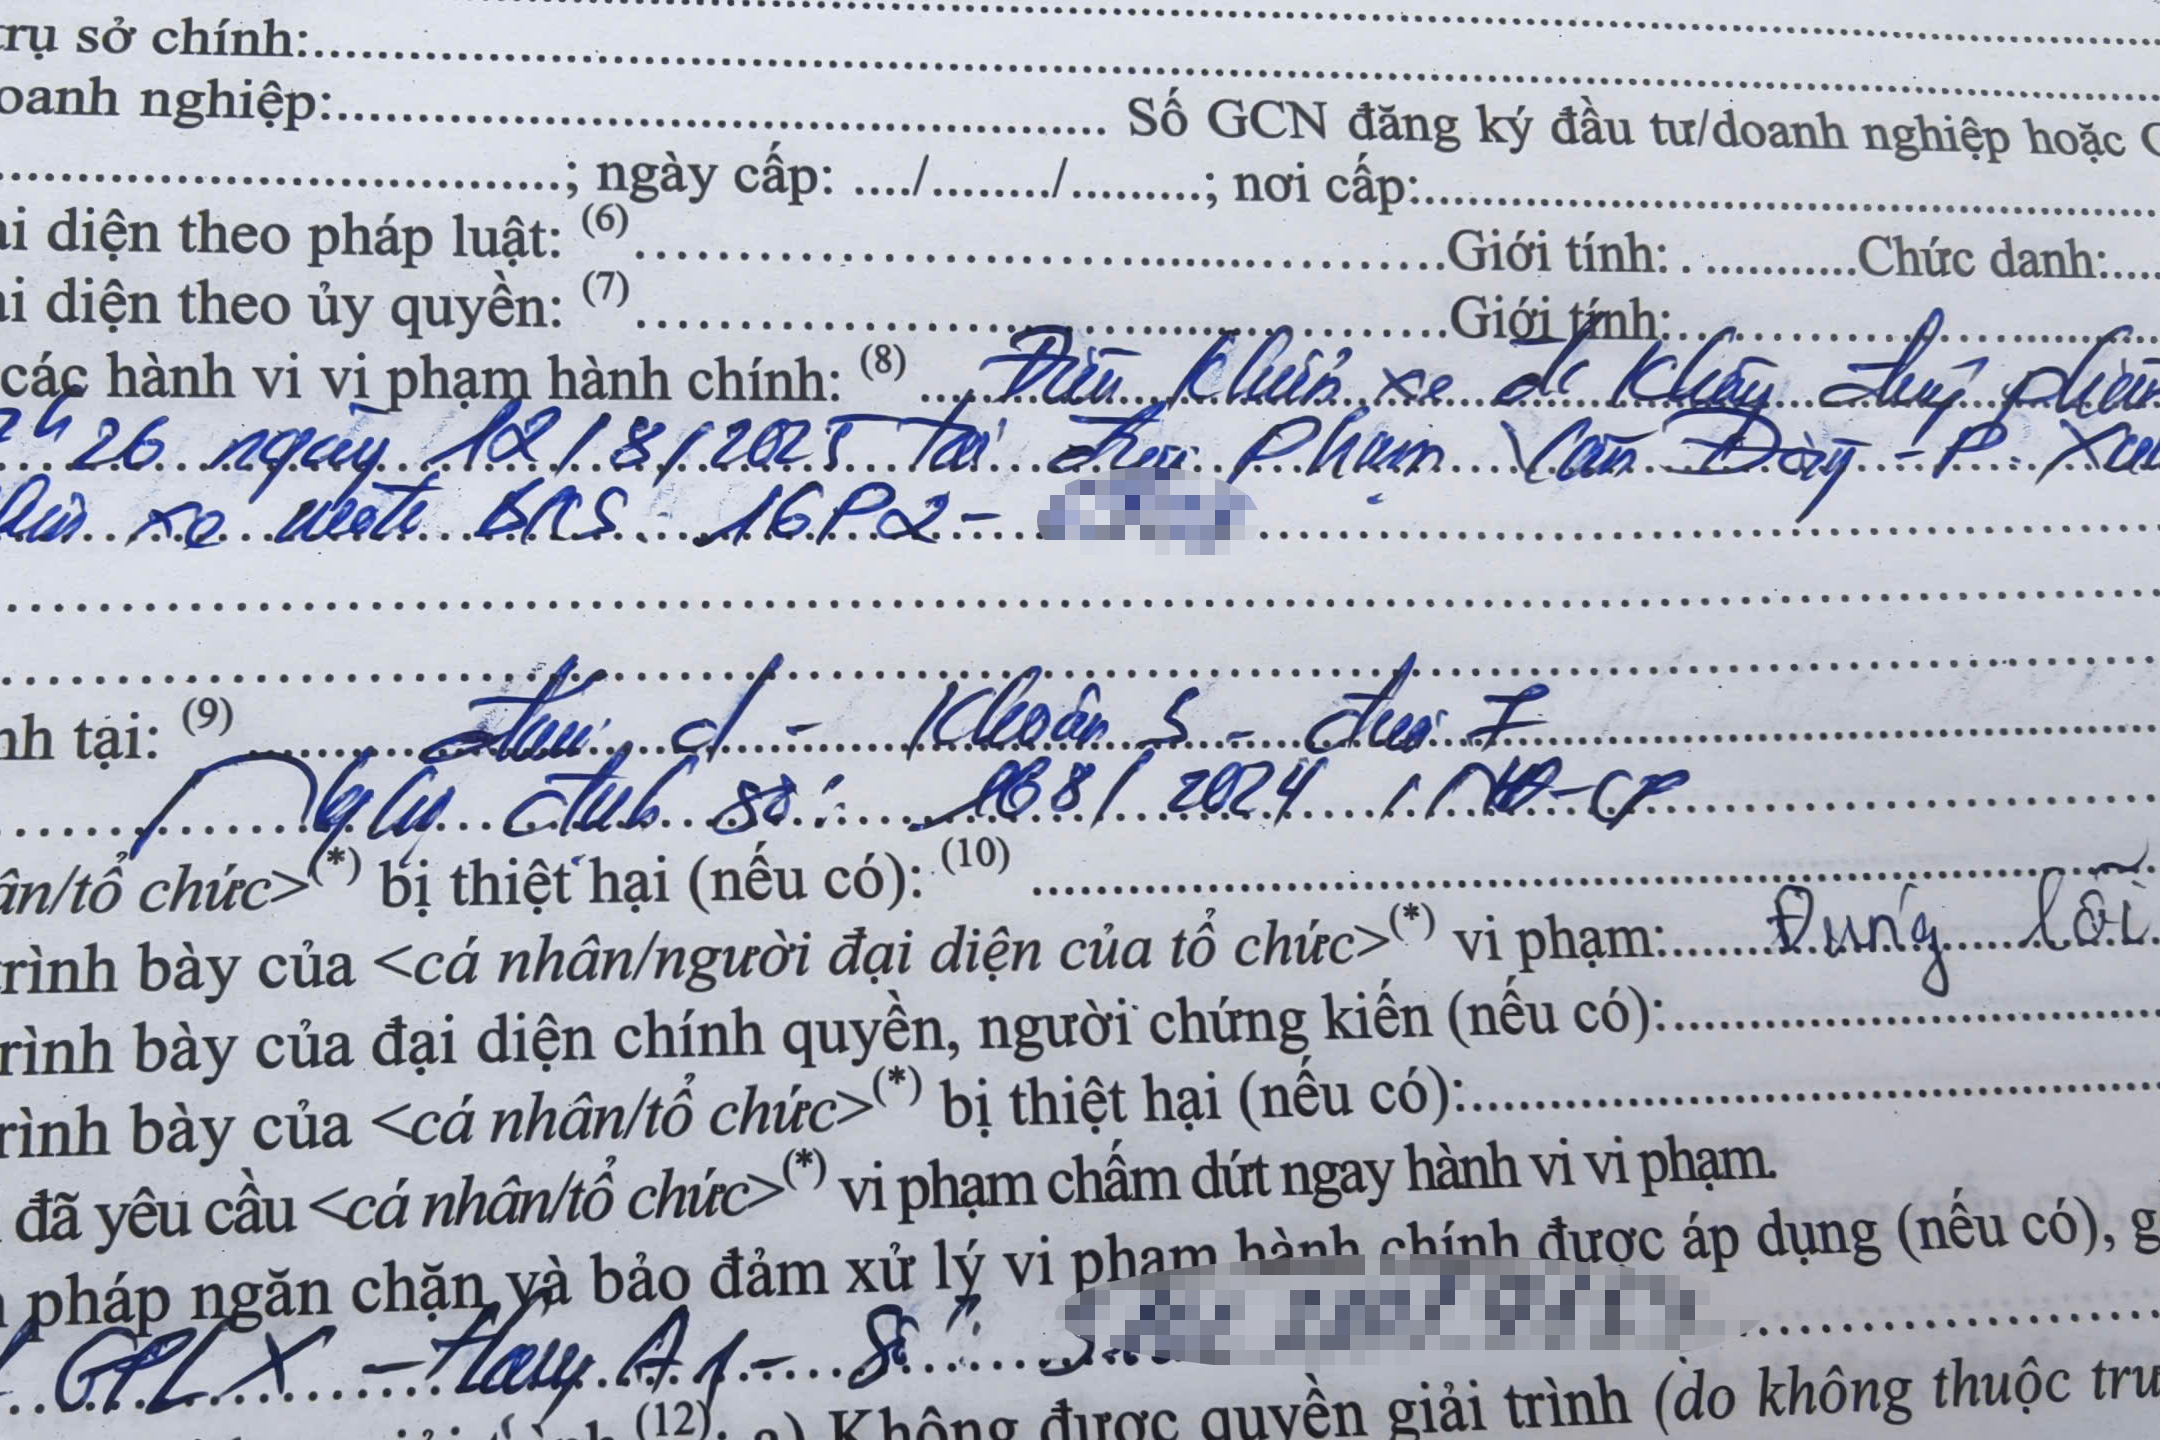 trụ sở chính:
oanh nghiệp: Số GCN đăng ký đầu tư/doanh nghiệp hoặc G
; ngày cấp: ..../......../.........; nơi cấp:
ại diện theo pháp luật: (6) Giới tính: Chức danh:
ại diện theo ủy quyền: (7) Giới tính:
các hành vi vi phạm hành chính: (8) Điều khiển xe đi không đúng phần
26 ngày 12/8/2025 Tại đường Phạm Văn Đồng - P. Xuân
khiển xe moto BKS 16P2-
nh tại: (9) điểm d - Khoản 5 - điều 7
Nghị định số: 168/2024/NĐ-CP
ân/tổ chức>(*) bị thiệt hại (nếu có): (10)
trình bày của <cá nhân/người đại diện của tổ chức>(*) vi phạm: Đúng lỗi
rình bày của đại diện chính quyền, người chứng kiến (nếu có):
rình bày của <cá nhân/tổ chức>(*) bị thiệt hại (nếu có):
đã yêu cầu <cá nhân/tổ chức>(*) vi phạm chấm dứt ngay hành vi vi phạm.
pháp ngăn chặn và bảo đảm xử lý vi phạm hành chính được áp dụng (nếu có), g
GPLX - Hạng A1 - Số:
(12): a) Không được quyền giải trình (do không thuộc trư